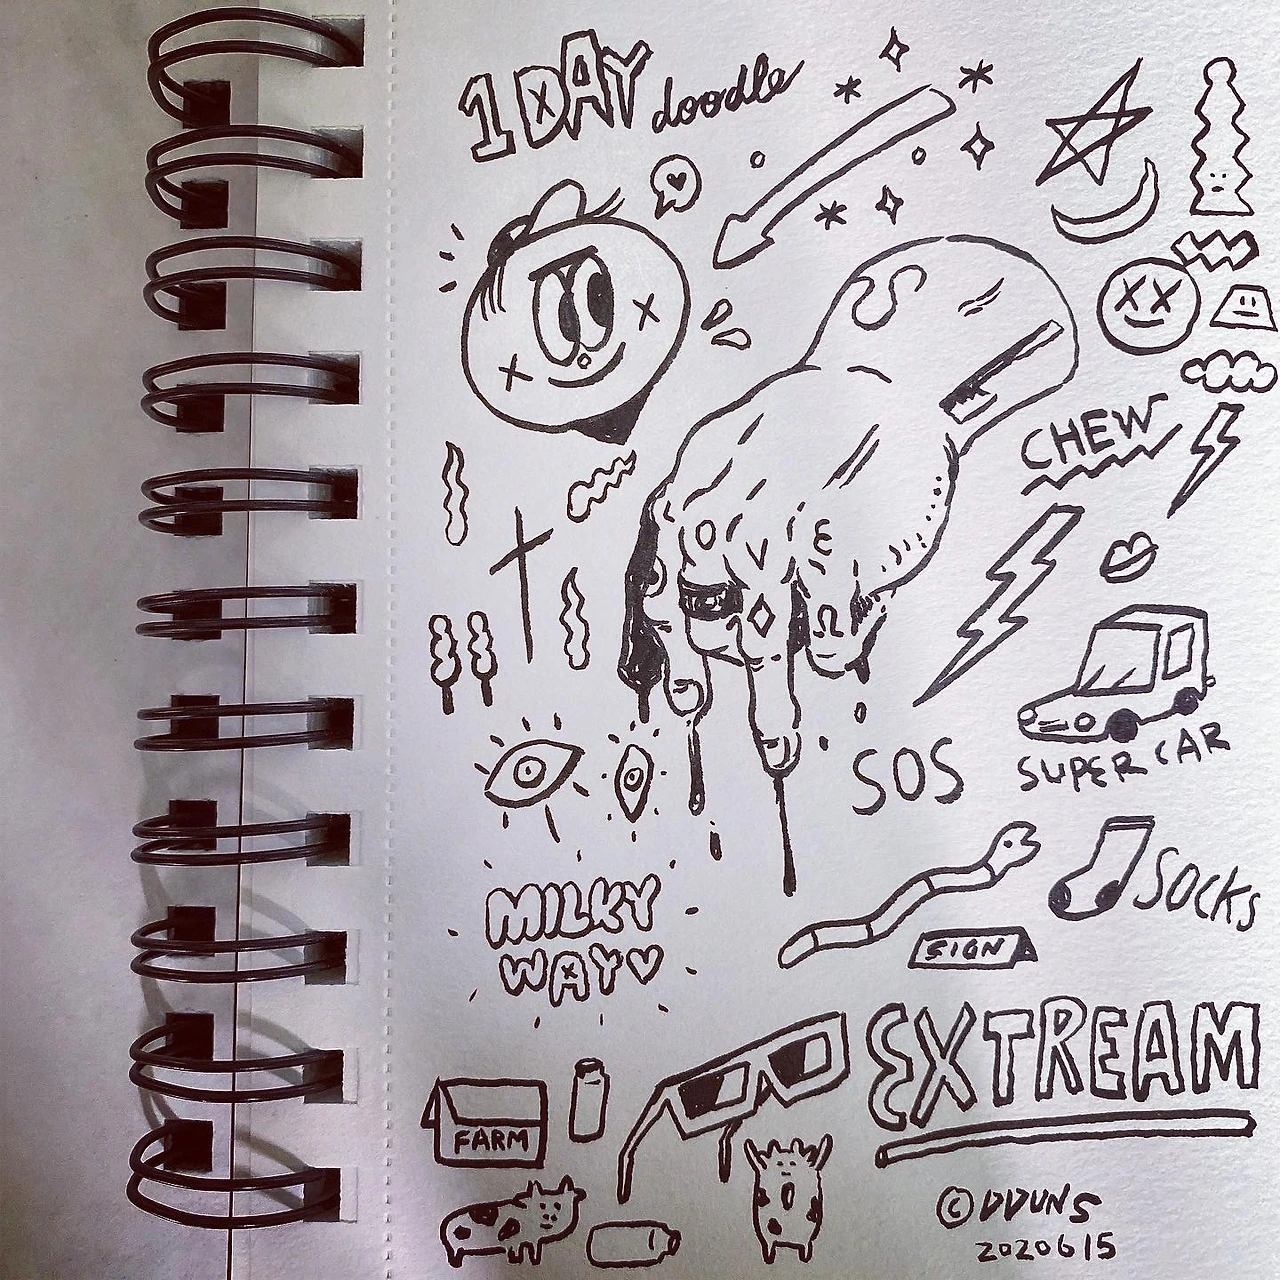 1 DAY doodle
CHEW
O V E
SOS
SUPER CAR
MILKY
WAY
SOCKS
SIGN
EXTREAM
FARM
© DDUNS
20200615